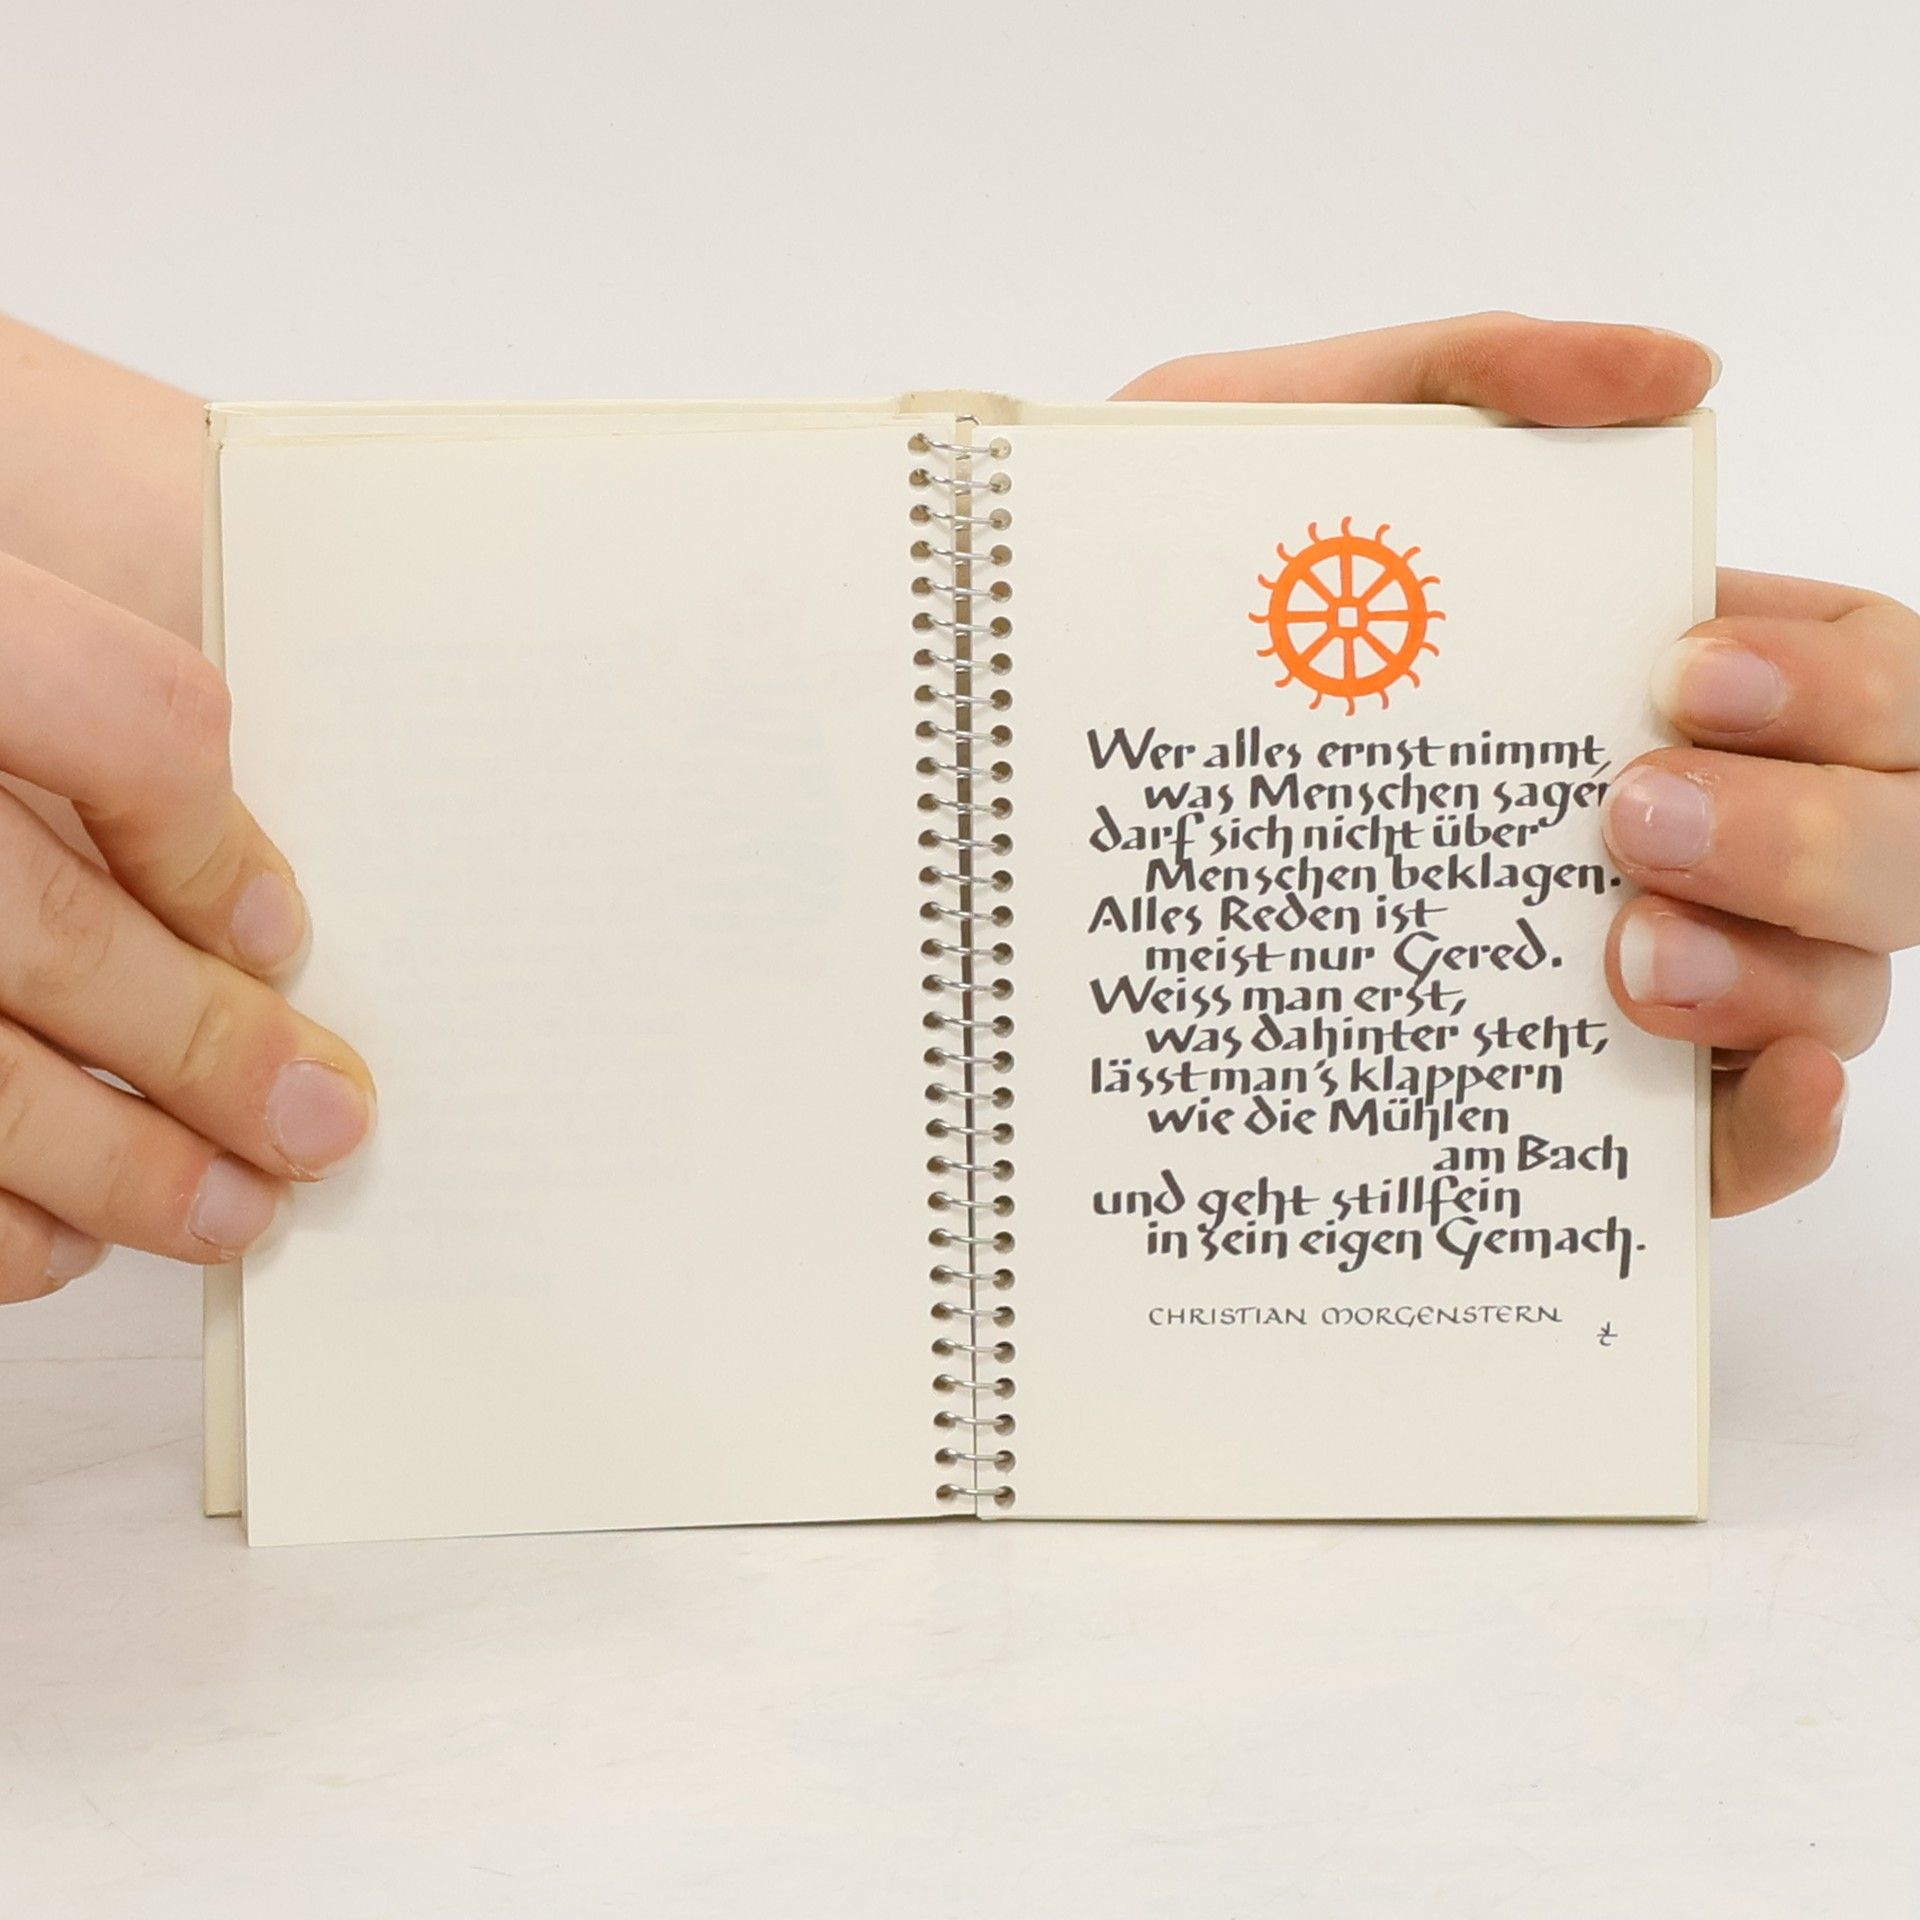 Wer alles ernst nimmt,
was Menschen sagen
darf sich nicht über
Menschen beklagen.
Alles Reden ist
meist nur Gered.
Weiss man erst,
was dahinter steht,
lässt man's klappern
wie die Mühlen
am Bach
und geht stillfein
in sein eigen Gemach.
CHRISTIAN MORGENSTERN